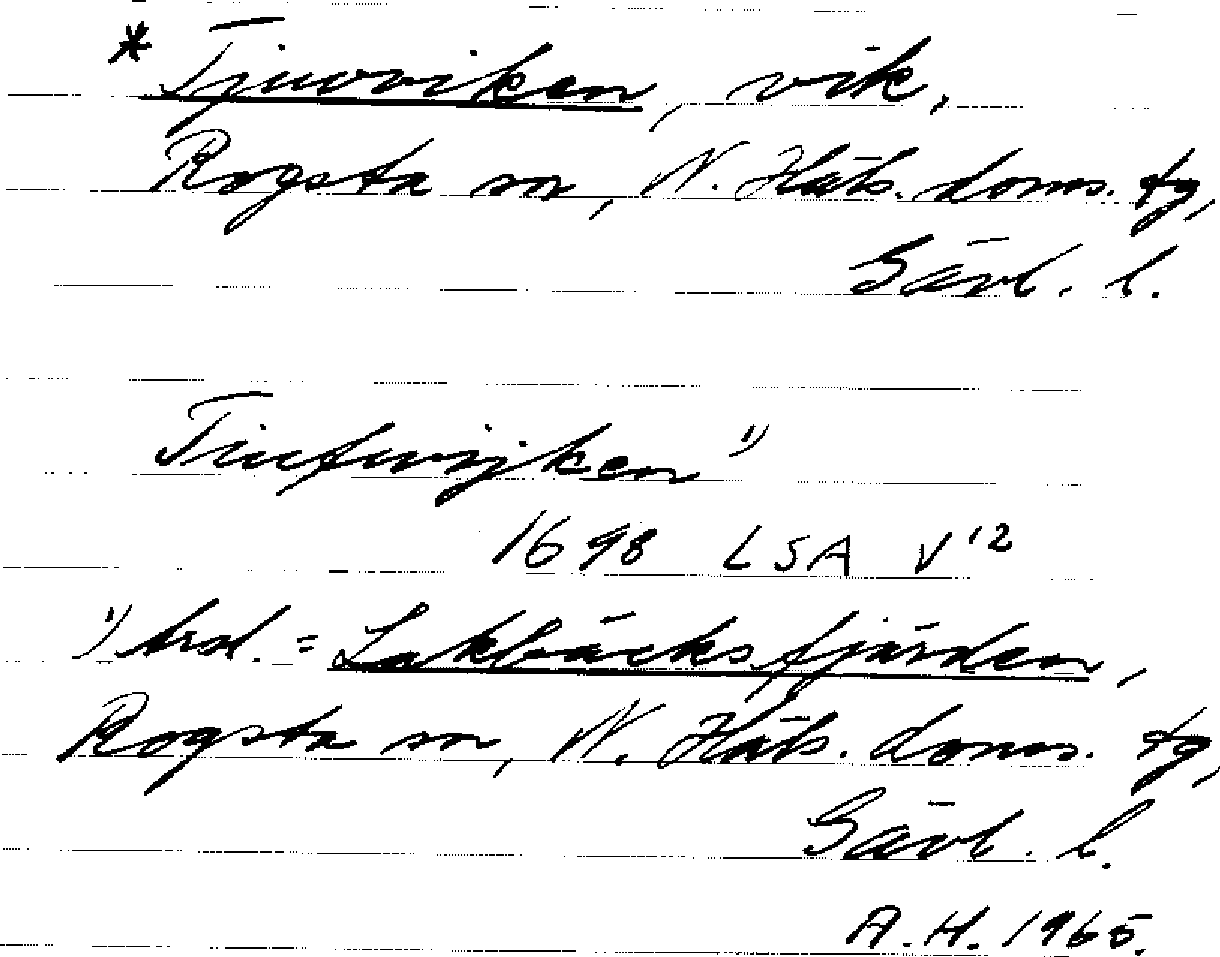 * Tjuvviken, vik,
Rogsta sn, N. Häls. doms. tg,
Gävl. l.
Tiufwijken 1)
1698 LSA V 12
1) trol. = Lakbäcksfjärden,
Rogsta sn, N. Häls. doms. tg,
Gävl. l.
A.H. 1965.